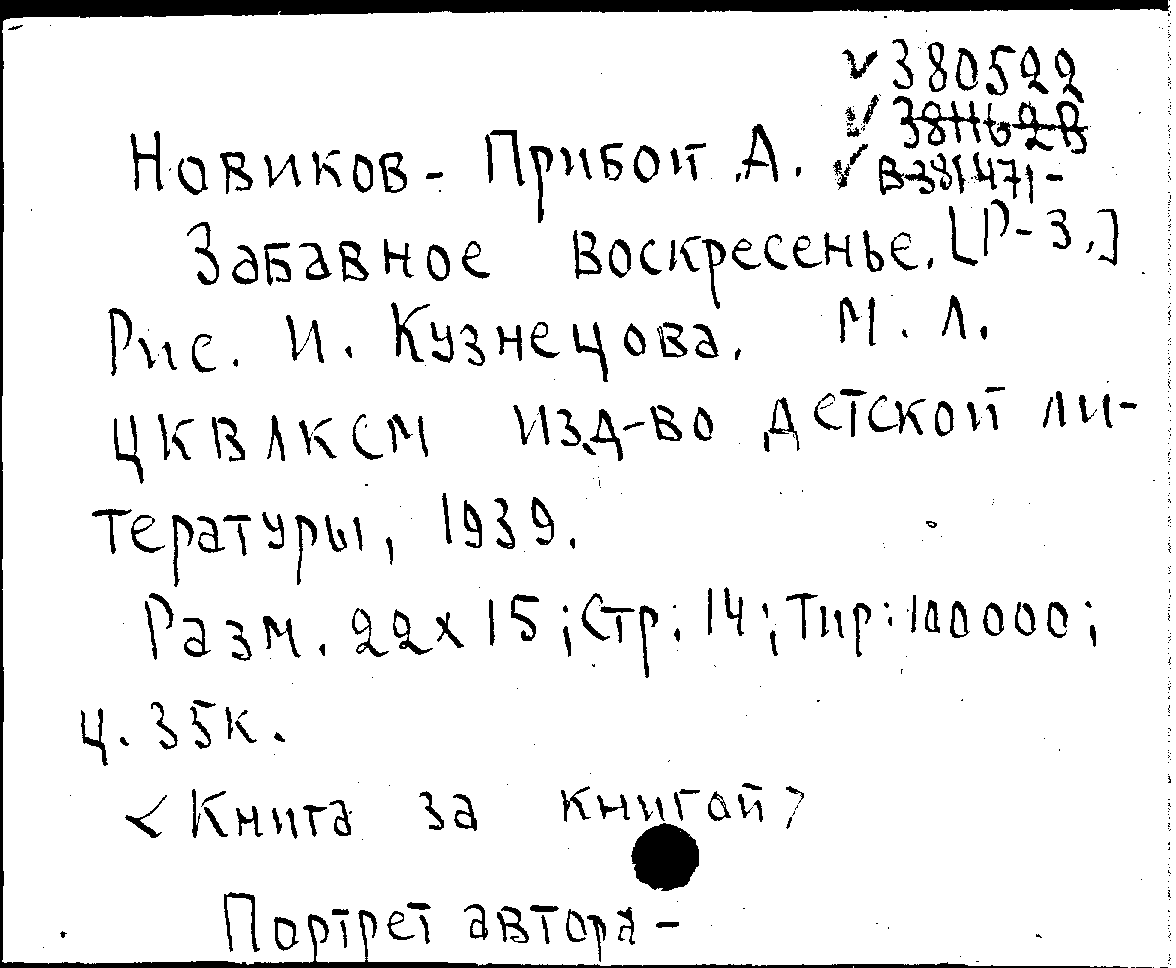 ✓380522
✓ 381162В
Новиков-Прибой А. ✓ В-381471-
Забавное воскресенье. [Р-з.]
Рис. И. Кузнецова. М. Л.
ЦКВЛКСМ изд-во детской ли-
тературы, 1939.
Разм. 22х15; Стр: 14; Тир: 100000;
ц. 35к.
<Книга за книгой>
Портрет автора-